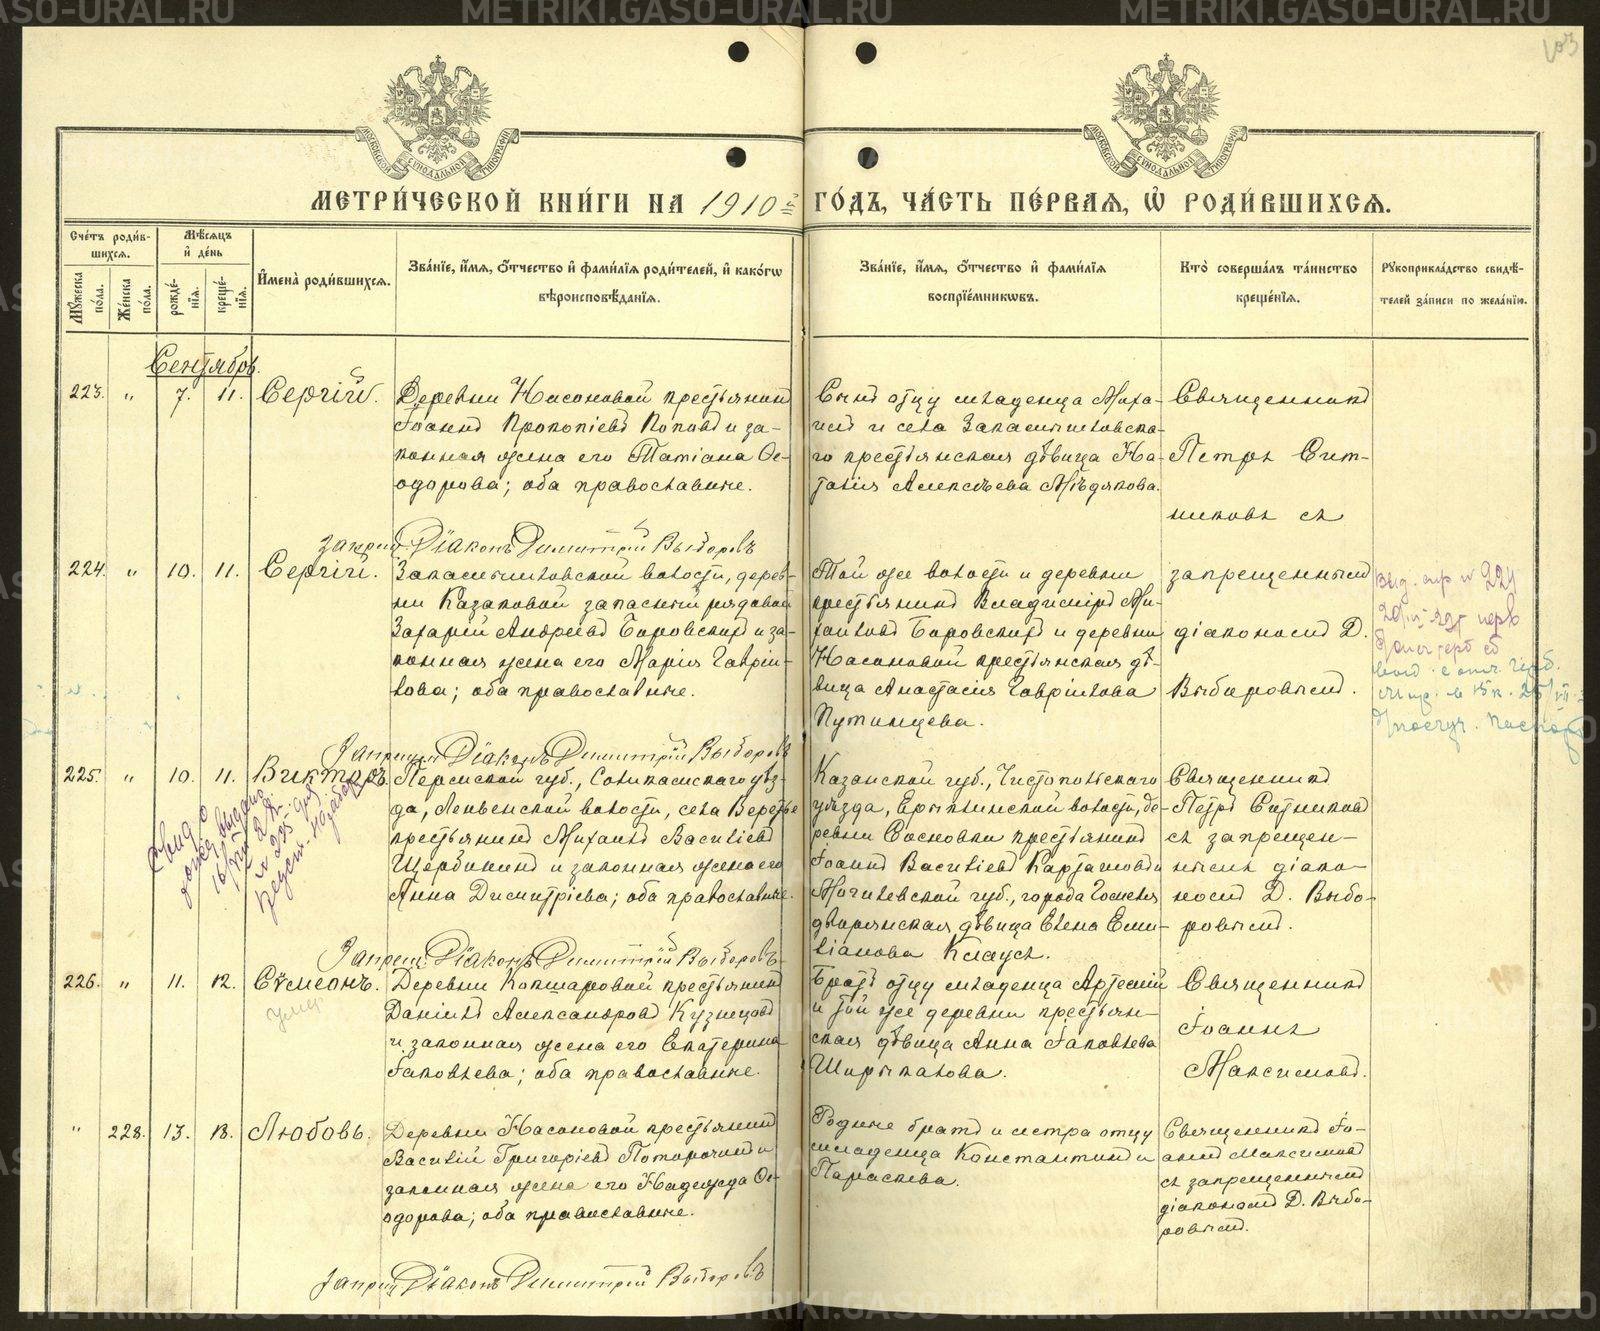 METRIKI.GASO-URAL.RU
METRIKI.GASO-URAL.RU
103
МОСКОВСКОЙ СѴНОДАЛЬНОЙ ТИПОГРАФІИ
МОСКОВСКОЙ СѴНОДАЛЬНОЙ ТИПОГРАФІИ
МЕТРИ́ЧЕСКОЙ КНИ́ГИ НА 1910 ГО́ДЪ, ЧА́СТЬ ПЕ́РВАЯ, Ѽ РОДИ́ВШИХСѦ.
Сче́тъ роди́в-
шихсѧ.
Мꙋ́жеска по́ла.
Же́нска по́ла.
Мѣ́сѧцъ
и҆ де́нь
рожде́-
нїѧ.
креще́-
нїѧ.
И҆мена̀ роди́вшихсѧ.
Зва́нїе, и҆́мѧ, ѻ҆́тчество и҆ фами́лїѧ роди́телей, и҆ како́гѡ
вѣроисповѣ́данїѧ.
Зва́нїе, и҆́мѧ, ѻ҆́тчество и҆ фами́лїѧ
воспрїе́мникѡвъ.
Кто̀ соверша́лъ та́инство
креще́нїѧ.
Рꙋкоприкла́дство свидѣ́-
телей за́писи по жела́нїю.
Сентябрь.
223. " 7. 11. Сергій.
Деревни Насоновой крестьянинъ
Іоаннъ Прокопіевъ Поповъ и за-
конная жена его Татіана Ѳе-
одорова; оба православные.
Сынъ отцу младенца Миха-
илъ и села Закамышловско-
го крестьянская дѣвица На-
талія Алексѣева Мѣдякова.
Священникъ
Петръ Сит-
никовъ съ
запрещеннымъ
діакономъ Д.
Выборовымъ.
запрещ. Діаконъ Димитрій Выборовъ
224. " 10. 11. Сергій.
Закамышловской волости, дерев-
ни Казаковой запасный рядовой
Захарій Андреевъ Боровскихъ и за-
конная жена его Марія Гаврии-
лова; оба православные.
Той же волости и деревни
крестьянинъ Владиміръ Ми-
хаиловъ Боровскихъ и деревни
Насоновой крестьянская дѣ-
вица Анастасія Гавріилова
Путинцева.
Запрещен. Діаконъ Димитрій Выборовъ
225. " 10. 11. Викторъ.
Пермской губ., Соликамскаго уѣз-
да, Ленвенской волости, села Веретье
крестьянинъ Михаилъ Василіевъ
Щербининъ и законная жена его
Анна Димитріева; оба православные.
Казанской губ., Чистопольскаго
уѣзда, Ерыклинской волости, де-
ревни Сосновки крестьянинъ
Іоаннъ Василіевъ Карташовъ и
Могилевской губ., города Гомеля
дворянская дѣвица Елена Еми-
ліанова Клаусъ.
Священникъ
Петръ Ситниковъ
съ запрещен-
нымъ діако-
номъ Д. Выбо-
ровымъ.
Запрещ. Діаконъ Димитрій Выборовъ
226. " 11. 12. Сѵмеонъ.
умер
Деревни Кокшаровой крестьянинъ
Даніилъ Александровъ Кузнецовъ
и законная жена его Екатерина
Іаковлева; оба православные.
Братъ отцу младенца Артемій
и той же деревни крестьян-
ская дѣвица Анна Іаковлева
Ширыкалова.
Священникъ
Іоаннъ
Максимовъ.
" 228. 13. 18. Любовь.
Деревни Насоновой крестьянинъ
Василій Григоріевъ Поторочинъ и
законная жена его Надежда Ѳе-
одорова; оба православные.
Родные братъ и сестра отцу
младенца Константинъ и
Параскева.
Священникъ Іо-
аннъ Максимовъ
съ запрещеннымъ
діакономъ Д. Выбо-
ровымъ.
запрещ. Діаконъ Димитрій Выборовъ
METRIKI.GASO-URAL.RU
METRIKI.GASO-URAL.RU